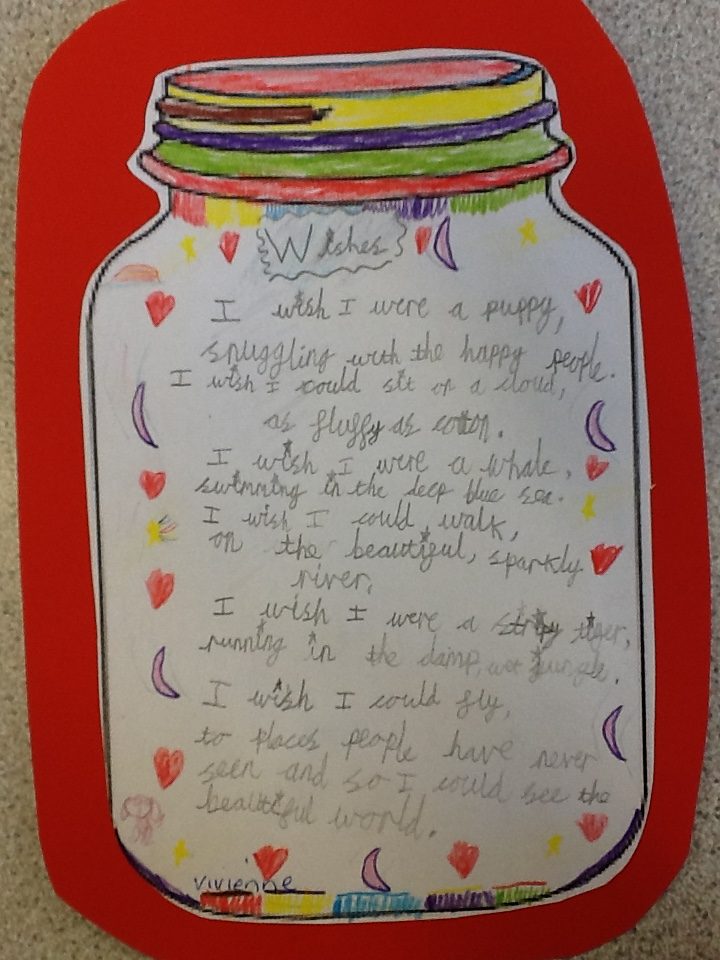 Wishes
I wish I were a puppy,
snuggling with the happy people.
I wish I could sit on a cloud,
as fluffy as cotton.
I wish I were a whale,
swimming in the deep blue sea.
I wish I could walk,
on the beautiful, sparkly
river.
I wish I were a stripy tiger,
running in the damp, wet jungle.
I wish I could fly,
to places people have never
seen and so I could see the
beautiful world.
Vivienne